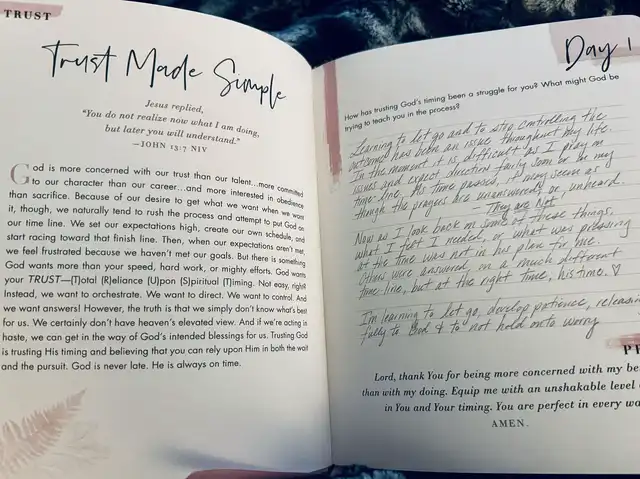 TRUST
Trust Made Simple
Jesus replied,
"You do not realize now what I am doing,
but later you will understand."
—JOHN 13:7 NIV
God is more concerned with our trust than our talent...more committed
to our character than our career...and more interested in obedience
than sacrifice. Because of our desire to get what we want when we want
it, though, we naturally tend to rush the process and attempt to put God on
our time line. We set our expectations high, create our own schedule, and
start racing toward that finish line. Then, when our expectations aren't met,
we feel frustrated because we haven't met our goals. But there is something
God wants more than your speed, hard work, or mighty efforts. God wants
your TRUST—(T)otal (R)eliance (U)pon (S)piritual (T)iming. Not easy, right?
Instead, we want to orchestrate. We want to direct. We want to control. And
we want answers! However, the truth is that we simply don't know what's best
for us. We certainly don't have heaven's elevated view. And if we're acting in
haste, we can get in the way of God's intended blessings for us. Trusting God
is trusting His timing and believing that you can rely upon Him in both the wait
and the pursuit. God is never late. He is always on time.
Day 1
How has trusting God's timing been a struggle for you? What might God be
trying to teach you in the process?
Learning to let go and to stop controlling the
outcome has been an issue throughout my life.
In the moment it is difficult as I pray on
issues and expect direction fairly soon or be my
time-line. As time passes, it may seem as
though the prayers are unanswered or, unheard.
They are Not
Now as I look back on some of these things,
what I felt I needed, or what was pressing
at the time was not in his plan for me.
Others were answered, in a much different
time-line, but at the right time, his time. ♡
I'm learning to let go, develop patience, releasing
fully to God & to not hold onto worry
Lord, thank You for being more concerned with my
than with my doing. Equip me with an unshakable level
in You and Your timing. You are perfect in every
AMEN.